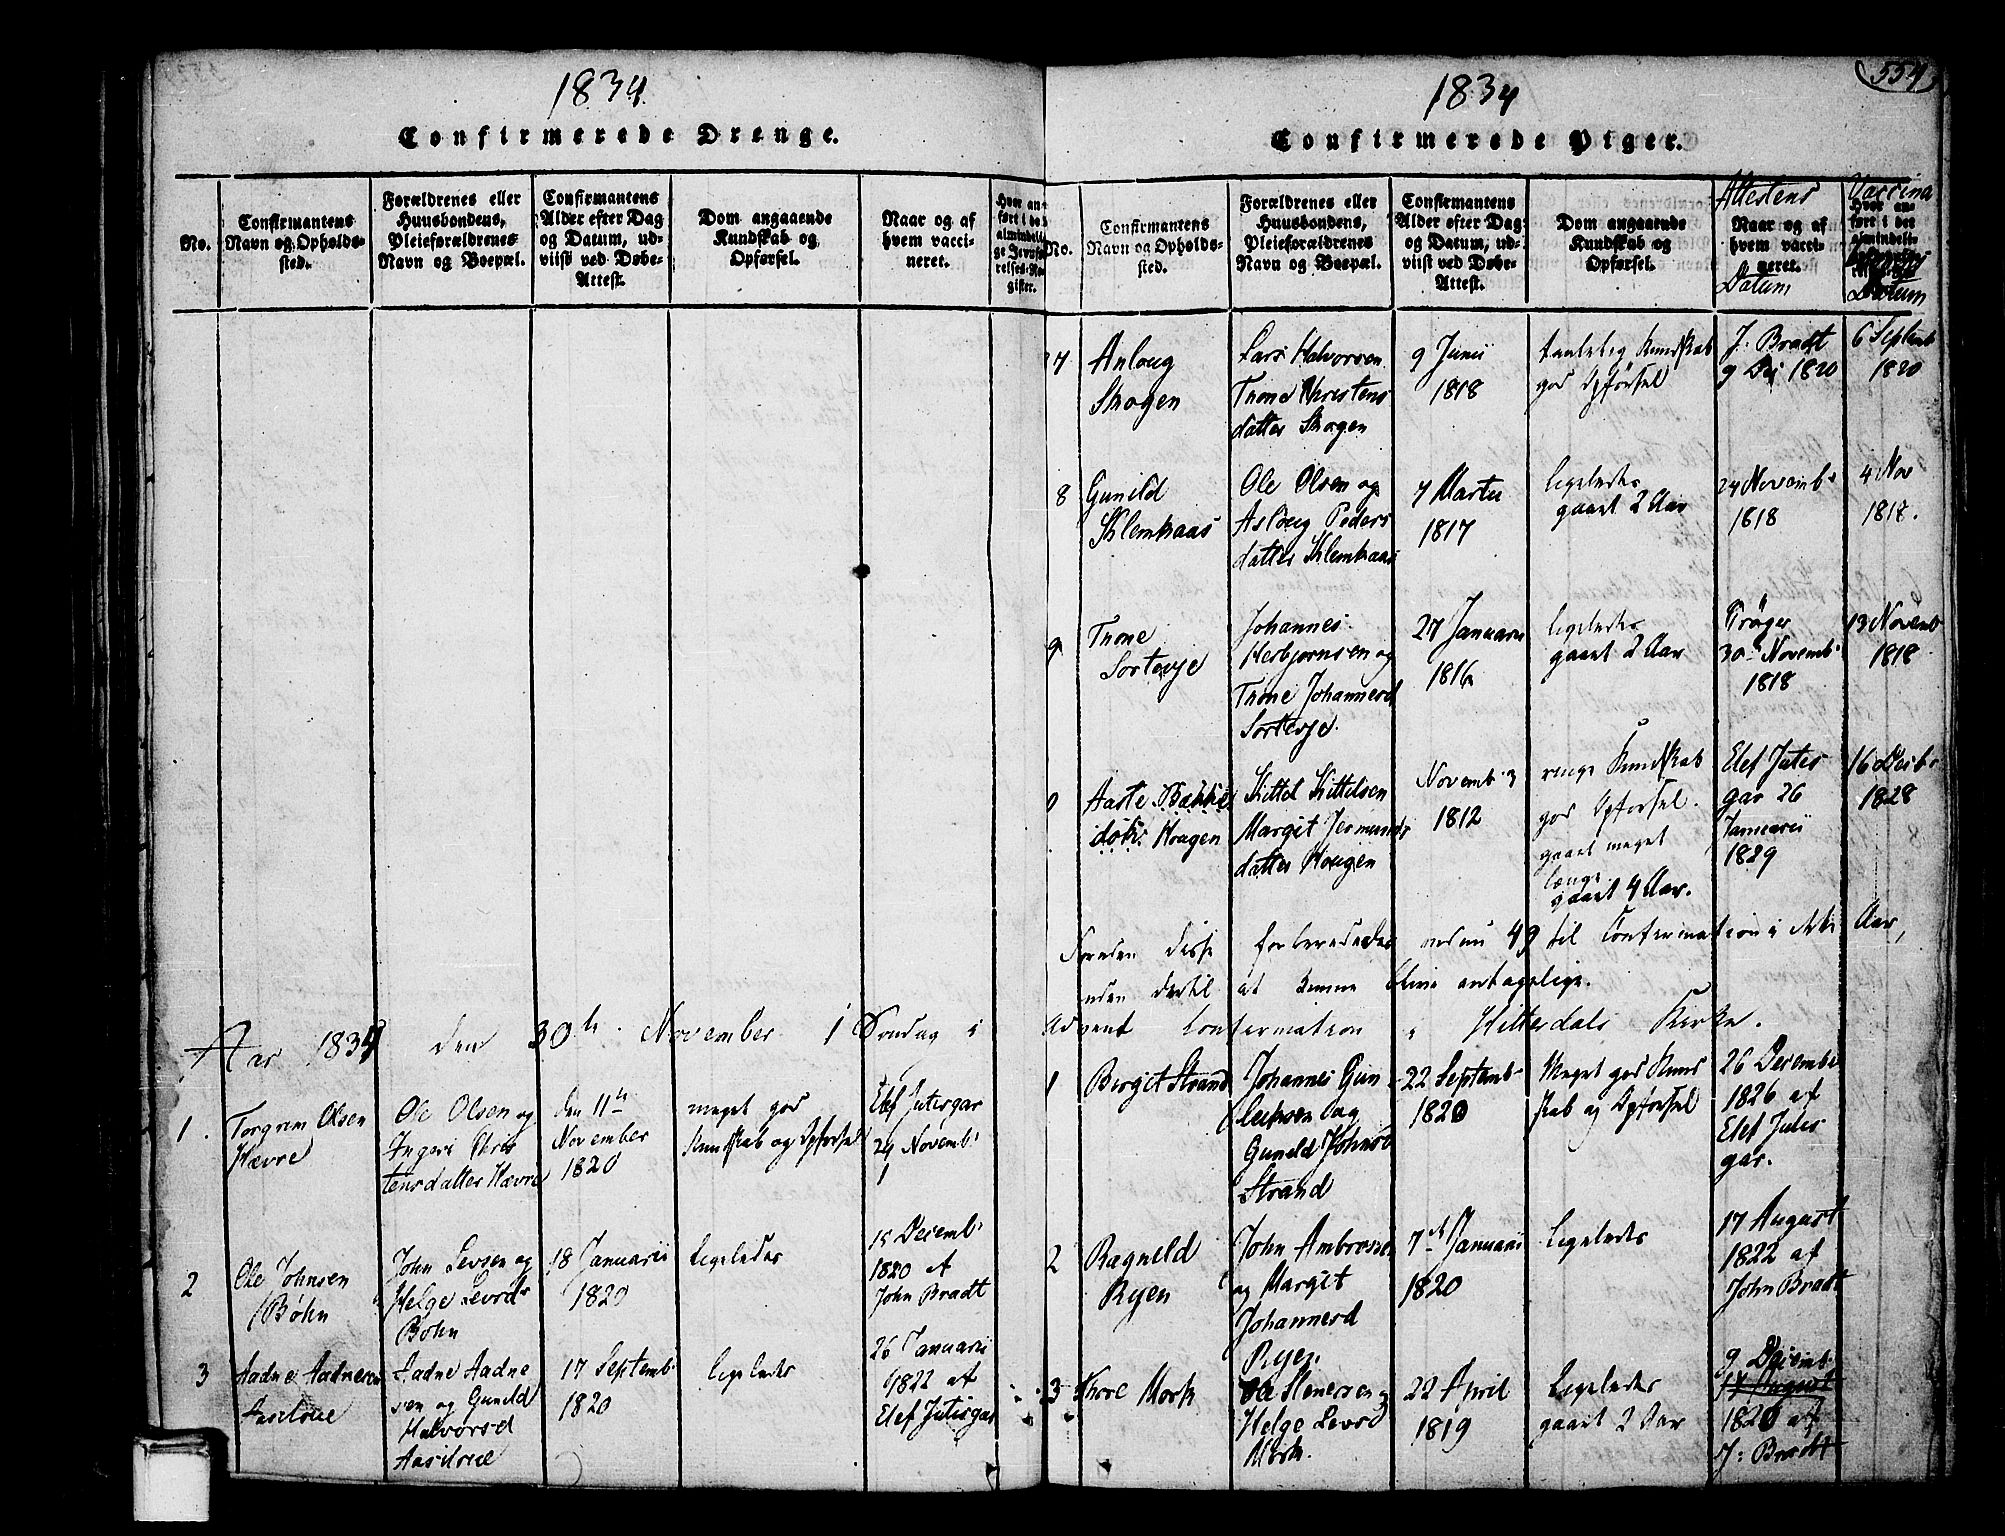 1834
Confirmerede Drenge.
No.
Confirmantens
Navn og Opholds-
sted.
Forældrenes eller
Huusbondens,
Pleieforældrenes
Navn og Boepæl.
Confirmantens
Alder efter Dag
og Datum, ud-
viist ved Døbe-
Attest.
Dom angaaende
Kundskab og
Opførsel.
Naar og af
hvem vacci-
neret.
Hvor an-
ført i de
almindeli-
ge Jevnfø-
relses-Re-
gister.
Aar 1834 den 30te November 1 Søndag i
1.
Torgrim Olsen
Hævre
Ole Olsen og
Ingeri Chris
tensdatter Hævre
den 11te
November
1820
meget god
Kundskab og Opførsel
Elef Jutesgar
24 Novemb.
2
Ole Johnsen
Bøhn
John Levsen og
Helge Levsd.
Bøhn
18 Januarii
1820
ligeledes
15 Decemb.
1820 af
John Bradt
3
Aadne Aadnesen
Aasloue
Aadne Aadne
sen og Gunild
Halvorsd
17 Septemb.
1820
ligeledes
26 Januarii
1822 af
Elef Jutesgar
1834
554
Confirmerede Piger.
No.
Confirmantens
Navn og Opholds-
sted.
Forældrenes eller
Huusbondens,
Pleieforældrenes
Navn og Boepæl.
Confirmantens
Alder efter Dag
og Datum, ud-
viist ved Døbe-
Attest.
Dom angaaende
Kundskab og
Opførsel.
Attestens
Naar og af
hvem vacci-
neret.
Datum
Vaccina
Hvor an-
ført i de
almindeli-
Datum
7
Anloug
Skogen
Lars Halvorsen
Tnone Christens
datter Skogen
9 Junii
1818
taalelig Kundskab
god Opførsel
J. Bradt
9 Dec 1820
6 Septemb
1820
8
Gunild
Klemhaas
Ole Olsen og
Asloug Peders
datter Klemhaas
7 Martii
1817
ligeledes
gaaet 2 Aar
24 Novemb.
1818
4 Nov
1818.
9
Tnone
Sortesje
Johannes
Herbjørnsen og
Tnone Johannesd
Sortesje.
27 Januarii
1816
ligeledes
gaaet 2 Aar
Trøger
30 Novemb.
1818
13 Novemb
1818
0
Aaste Bække
Hougen
Kittel Kittilsen
Margit Jermunds
datter Hougen
Novemb. 3
1812
ringe Kundskab
god Opførsel.
gaaet meget
længe
gaaet 4 Aar.
Elef Jutes
gar 26
Januarii
1829
16 Decb.
1828
Foruden disse forberededes endnu 49 til Confirmation i dette Aar,
uden dertil at kunne blive antagelige.
Advent Confirmation i Hitterdals Kirke.
1
Birgit Strand
Johannes Gun
leiksen og
Gunild Johnsd
Strand
22 Septemb.
1820
Meget god Kund
skab og Opførsel
26 Decemb
1826 af
Elef Jutes
gar.
2
Ragnild
Ryen
John Ambrosen
og Margit
Johannesd
Ryen.
7de Januarii
1820
ligeledes
17 August
1822 af
John Bradt
3
Thore Mork
Ole Stenersen og
Helge Levsd
Mork.
22 April
1819
ligeledes
gaaet 2 Aar
9 Decemb.
17 August
1820 af
J: Bradt